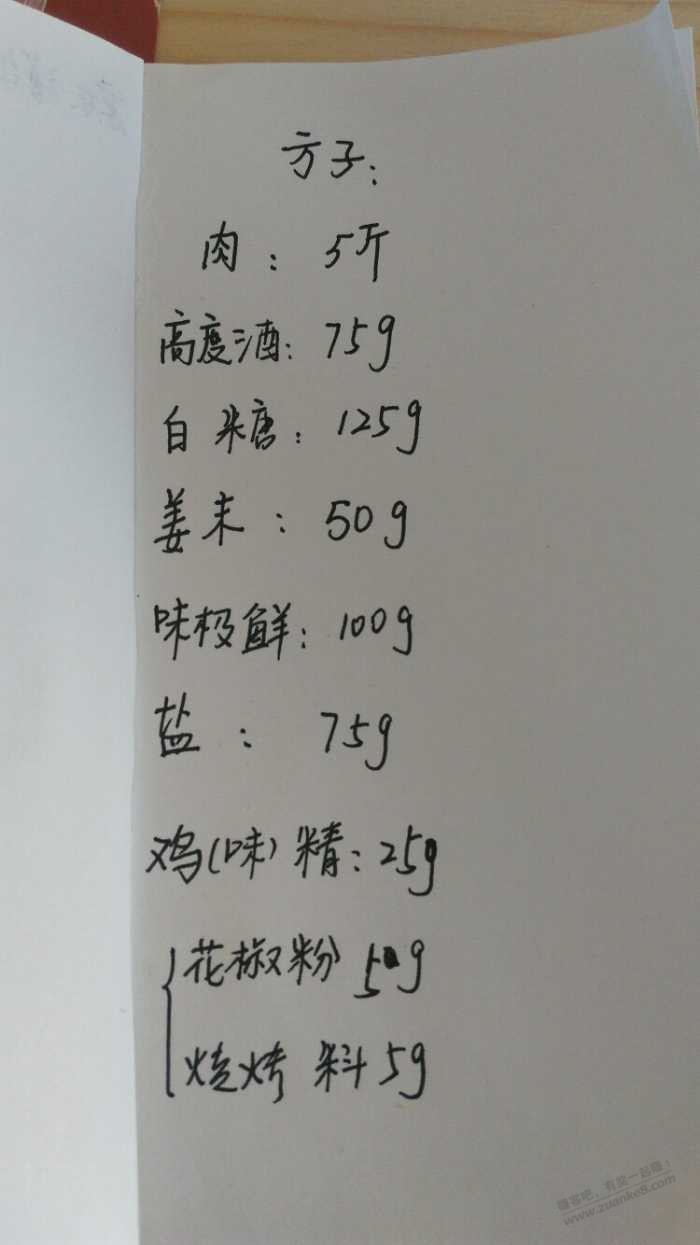 方子:
肉: 5斤
高度酒: 75g
白糖: 125g
姜末: 50g
味极鲜: 100g
盐: 75g
鸡(味)精: 25g
花椒粉
烧烤料 5g
赚客吧,有奖一起赚!
www.zuanke8.com